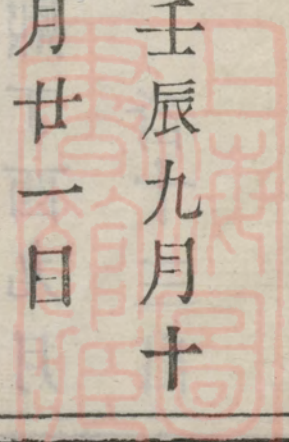 壬辰九月十
月廿一日